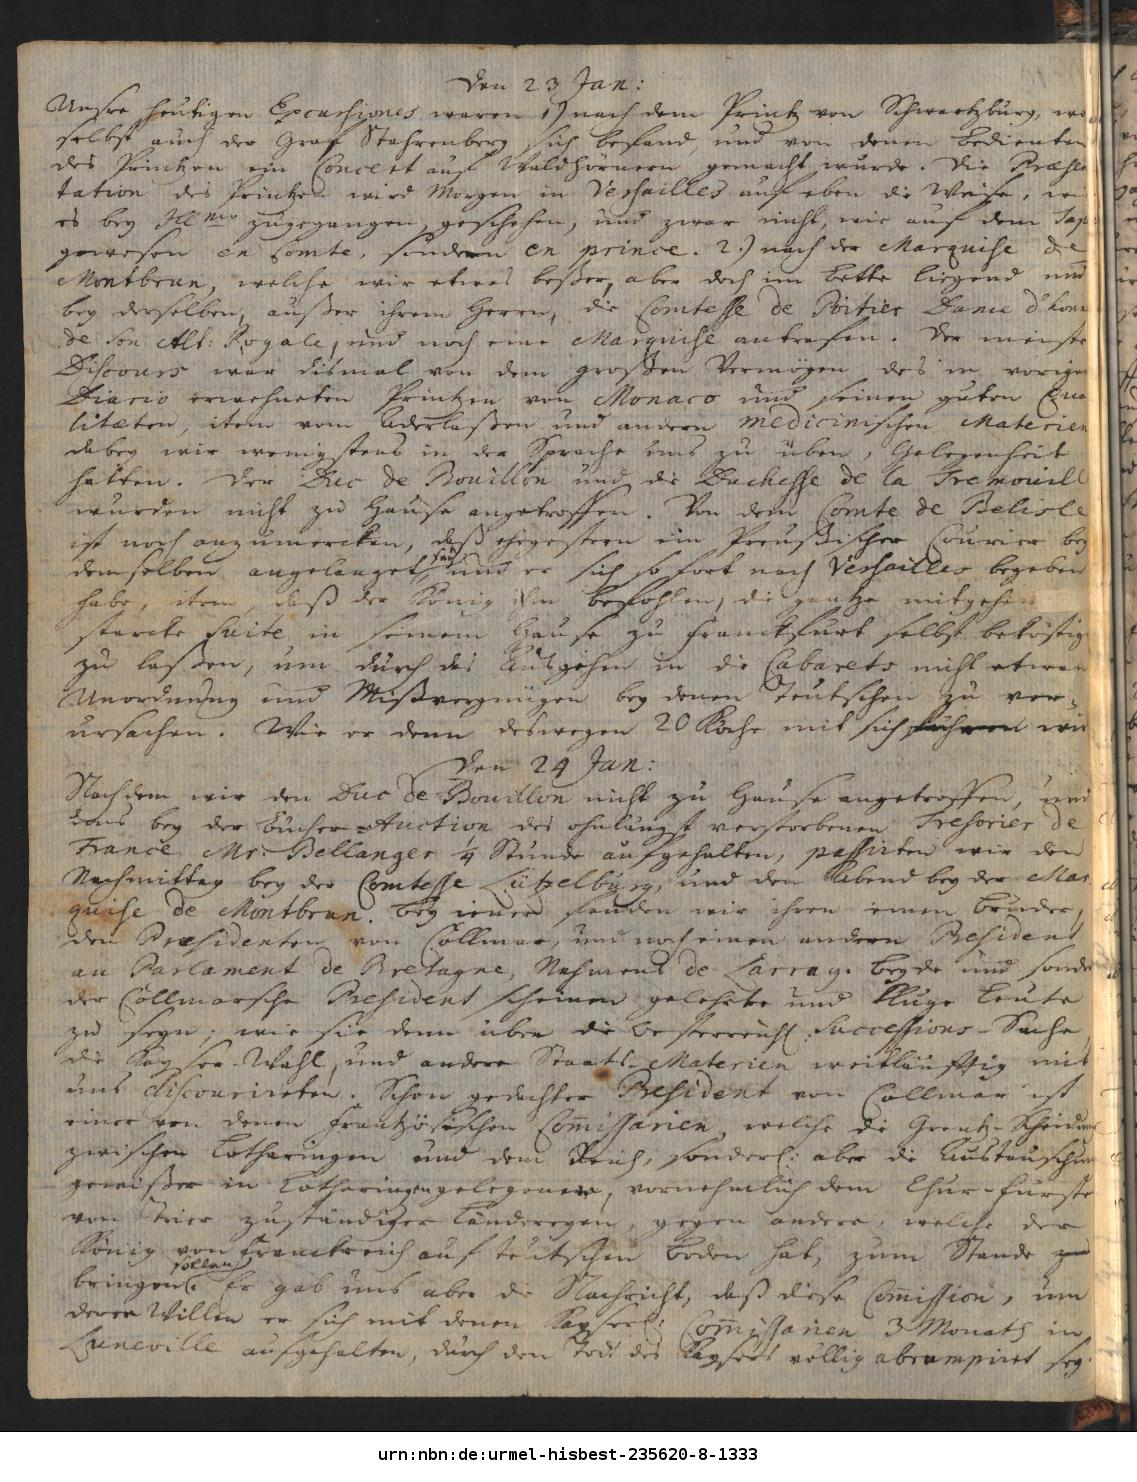 Den 23 Jan:
Unsre heutigen Excursiones waren 1) nach dem Printz von Schwartzburg, wo
selbst auch der Graf Stahrenberg sich befand, und von denen Bedienten
des Printzen ein Concert auf Waldhörnern gemacht wurde. Die Præsen
tation des Printzen wird Morgen in Versailles auf eben die Weise, wie
es bey Ill.mo zugegangen, geschehen, und zwar nicht, wie auf dem
gewesen en comte, sondern en prince. 2.) nach der Marquise de
Montbrun, welche wir etwas beßer, aber doch im Bette liegend und
bey derselben, außer ihrem Herrn, die Comtesse de Poitier Dame d'honn
de Son Alt: Royale, und noch eine Marquise antrafen. Der meiste
Discours war dismal von dem großen Vermögen des in vorigen
Diario erwehneten Printzen von Monaco und seinen guten Qua
litæten, item vom Aderlaßen und andern medicinischen Materien
dabey wir wenigstens in der Sprache uns zu üben, Gelegenheit
hatten. Der Duc de Bouillon und die Duchesse de la Tremouill
wurden nicht zu Hause angetroffen. Von dem Comte de Belisle
ist noch anzumercken, daß ehegestern ein Preußischer Courier bey
demselben angelanget sey, und er sich so fort nach Versailles begeben
habe, item, daß der König ihm befohlen, die gantze mitgehen
starcke Suite in seinem Hause zu Franckfurt selbst beköstig
zu laßen, um durch das Ausgehen in die Cabarets nicht etwan
Unordnung und Mißvergnügen bey denen Teutschen zu ver-
ursachen. Wie er denn deswegen 20 Köche mit sich führen wird
Den 24 Jan:
Nachdem wir den Duc de Bouillon nicht zu Hause angetroffen, und
uns bey der Bücher-Auction des ohnlängst verstorbenen Tresorier de
France Mr. Bellanger 1/4 Stunde aufgehalten, passirten wir den
Nachmittag bey der Comtesse Lützelburg, und den Abend bey der Mar
quise de Montbrun. Bey iener fanden wir ihren einen Bruder,
den Præsidenten von Collmar, und noch einen andern President
au Parlament de Bretagne, Nahmens de Larray. Beyde und sonde
der Collmarsche President scheinen gelehrte und kluge Leute
zu seyn; wie sie denn über die Oesterreichl: Successions-Sache,
die Kayser-Wahl, und andere Staats-Materien weitläufftig mit
uns discourireten. Schon gedachter President von Collmar ist
einer von denen Frantzösischen Commissarien, welche die Grentz-Scheidung
zwischen Lotharingen und dem Reich, sonderl: aber die Austauschun
gewißer in Lotharingen gelegener, vornehmlich dem Chur-Fürste
von Trier zuständiger Ländereyen, gegen andere, welche der
König von Franckreich auf teutschen Boden hat, zum Stande zu
bringen sollen. Er gab uns aber die Nachricht, daß diese Commission, um
derer Willen er sich mit denen Kayserl: Commissarien 3 Monath in
Luneville aufgehalten, durch den Todt des Kaysers völlig abrumpiret sey.
urn:nbn:de:urmel-hisbest-235620-8-1333